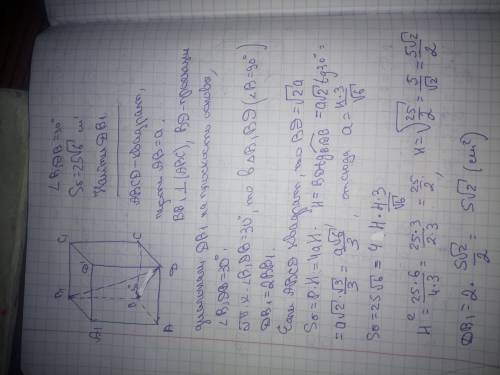 B₁ C₁
A₁ D
B C
A D
∠B₁DB=30°
Sб=25√6 м²
Найти DB₁
ABCD-квадрат,
пусть AB=a.
BB₁⊥(ABC), BD-проекция
диагонали DB₁ на плоскость основы,
∠B₁DB=30°.
Т.к. ∠B₁DB=30°, то в ΔB₁BD (∠B=90°)
DB₁=2BB₁.
Если ABCD квадрат, то BD=√2a
Sб=P·H=4aH. H=BDtgB₁DB=a√2tg30°=
=a√2·√3/3=a√6/3, откуда a=H·3/√6
Sб=25√6=4·H·H·3/√6
H²=25·6/4·3=25·3/2·3=25/2, H=√25/2=5/√2=5√2/2
DB₁=2·5√2/2=5√2 (см²)